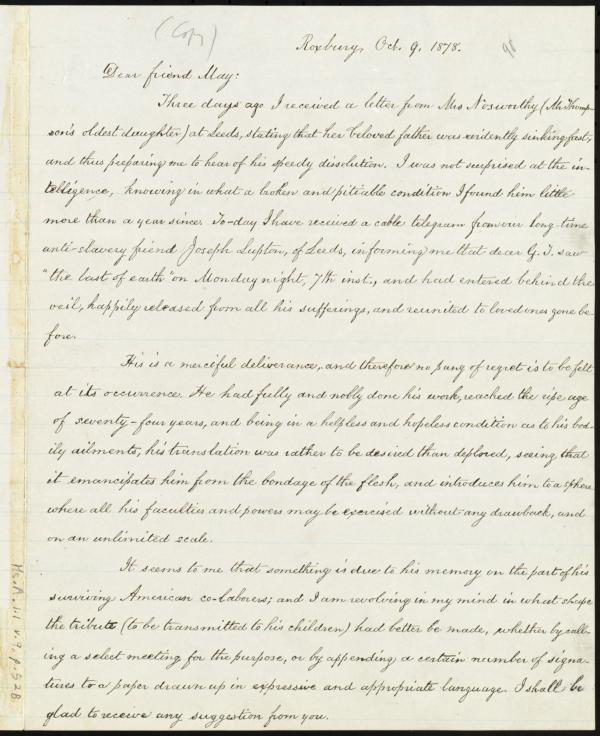 (Copy)
Roxbury, Oct. 9, 1878.
98
Dear friend May:
Three days ago I received a letter from Mrs Nosworthy (Mr. Thomp-
son's oldest daughter) at Leeds, stating that her beloved father was evidently sinking fast,
and thus preparing me to hear of his speedy dissolution. I was not surprised at the in-
telligence, knowing in what a broken and pitiable condition I found him little
more than a year since. To-day I have received a cable telegram from our long-time
anti-slavery friend Joseph Lupton, of Leeds, informing me that dear G. T. saw
"the last of earth" on Monday night, 7th inst., and had entered behind the
veil, happily released from all his sufferings, and reunited to loved ones gone be-
fore.
His is a merciful deliverance, and therefore no pang of regret is to be felt
at its occurrence. He had fully and nobly done his work, reached the ripe age
of seventy-four years, and being in a helpless and hopeless condition as to his bod-
ily ailments, his translation was rather to be desired than deplored, seeing that
it emancipates him from the bondage of the flesh, and introduces him to a sphere
where all his faculties and powers may be exercised without any drawback, and
on an unlimited scale.
It seems to me that something is due to his memory on the part of his
surviving American co-laborers; and I am revolving in my mind in what shape
the tribute (to be transmitted to his children) had better be made, whether by call-
ing a select meeting for the purpose, or by appending a certain number of signa-
tures to a paper drawn up in expressive and appropriate language. I shall be
glad to receive any suggestion from you.
Ms.A.1.1 v.9, p.52B